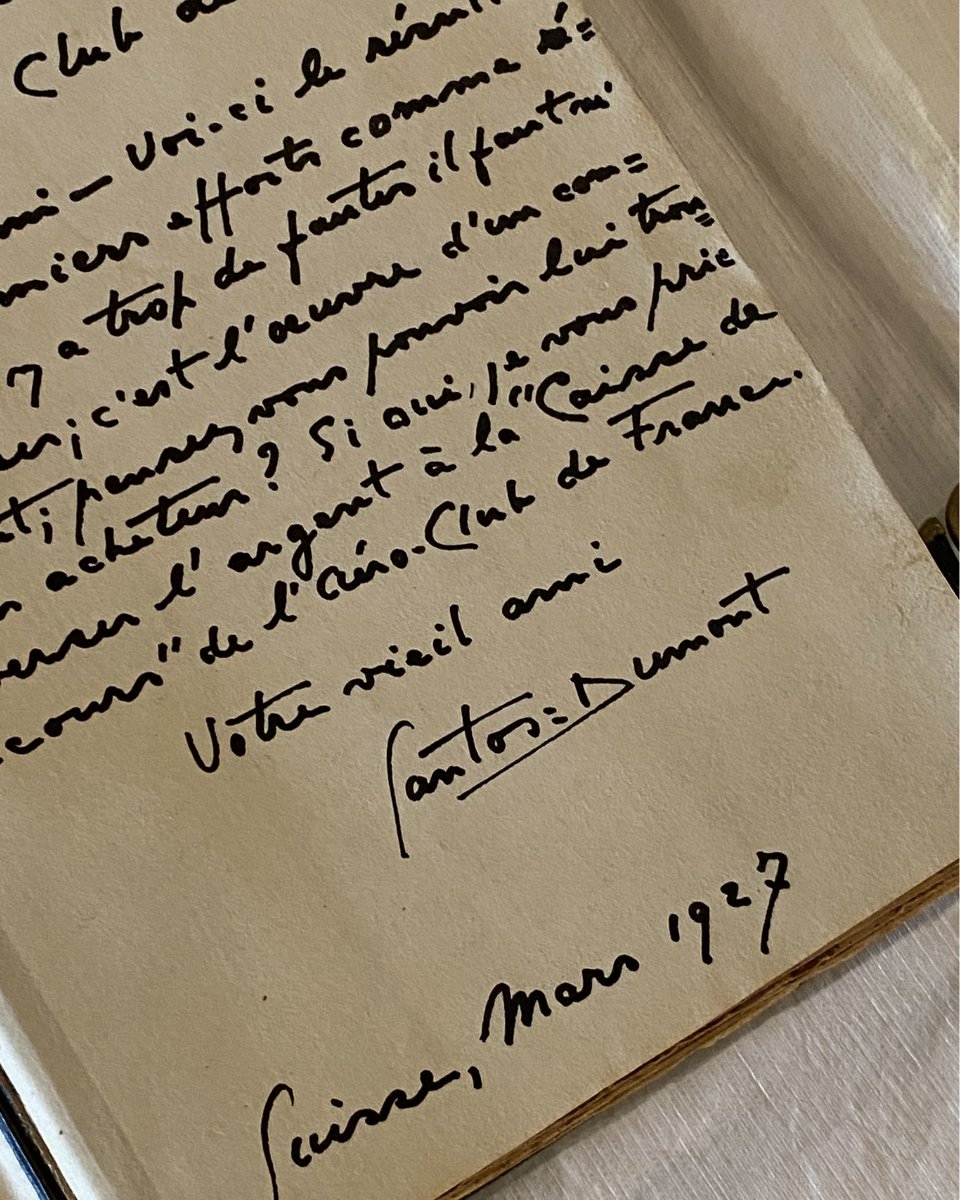 Club
mi — Voi-ci le résul
miers efforts comme é=
y a trop de fautes il faut m'
er; c'est l'œuvre d'un com=
ti; pensez vous pouvoir lui trou=
acheteur? Si oui, je vous prie
verser l'argent à la "Caisse de
cours" de l'Aéro-Club de France.
Votre vieil ami
Santos=Dumont
Suisse, Mars 1927